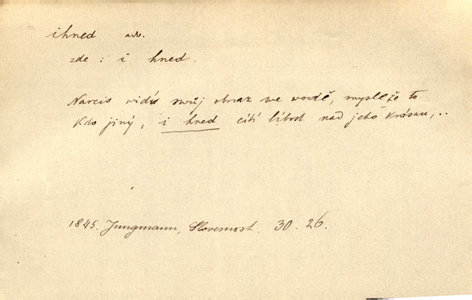 ihned adv.
zde: i hned.
Narcis vidív swůj obraz we wodě, mysle že to
kdo jiný, i hned cítí libost nad jeho krásau,..
1845. Jungmann, Slovesnost. 30. 26.